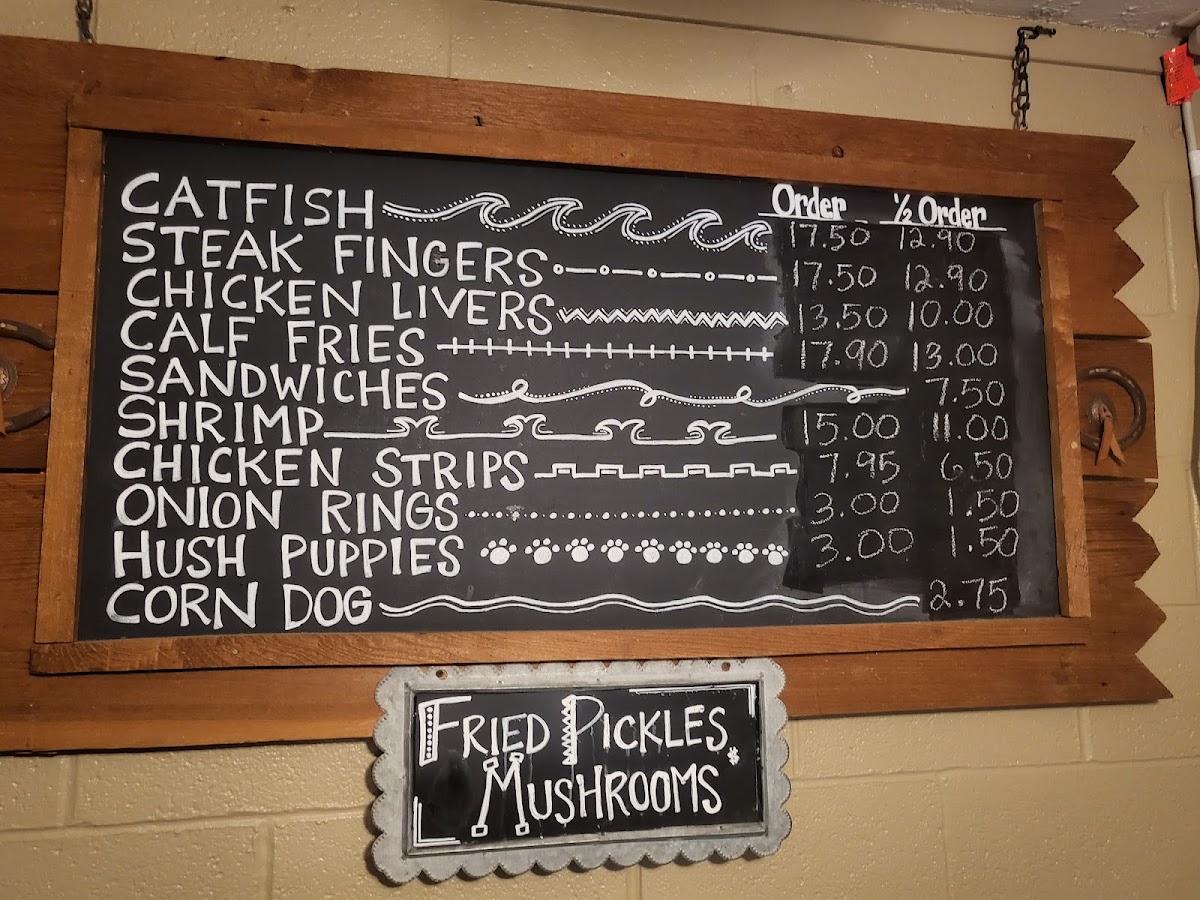 Order ½ Order
CATFISH 17.50 12.90
STEAK FINGERS 17.50 12.90
CHICKEN LIVERS 13.50 10.00
CALF FRIES 17.90 13.00
SANDWICHES 7.50
SHRIMP 15.00 11.00
CHICKEN STRIPS 7.95 6.50
ONION RINGS 3.00 1.50
HUSH PUPPIES 3.00 1.50
CORN DOG 2.75
FRIED PICKLES &
MUSHROOMS